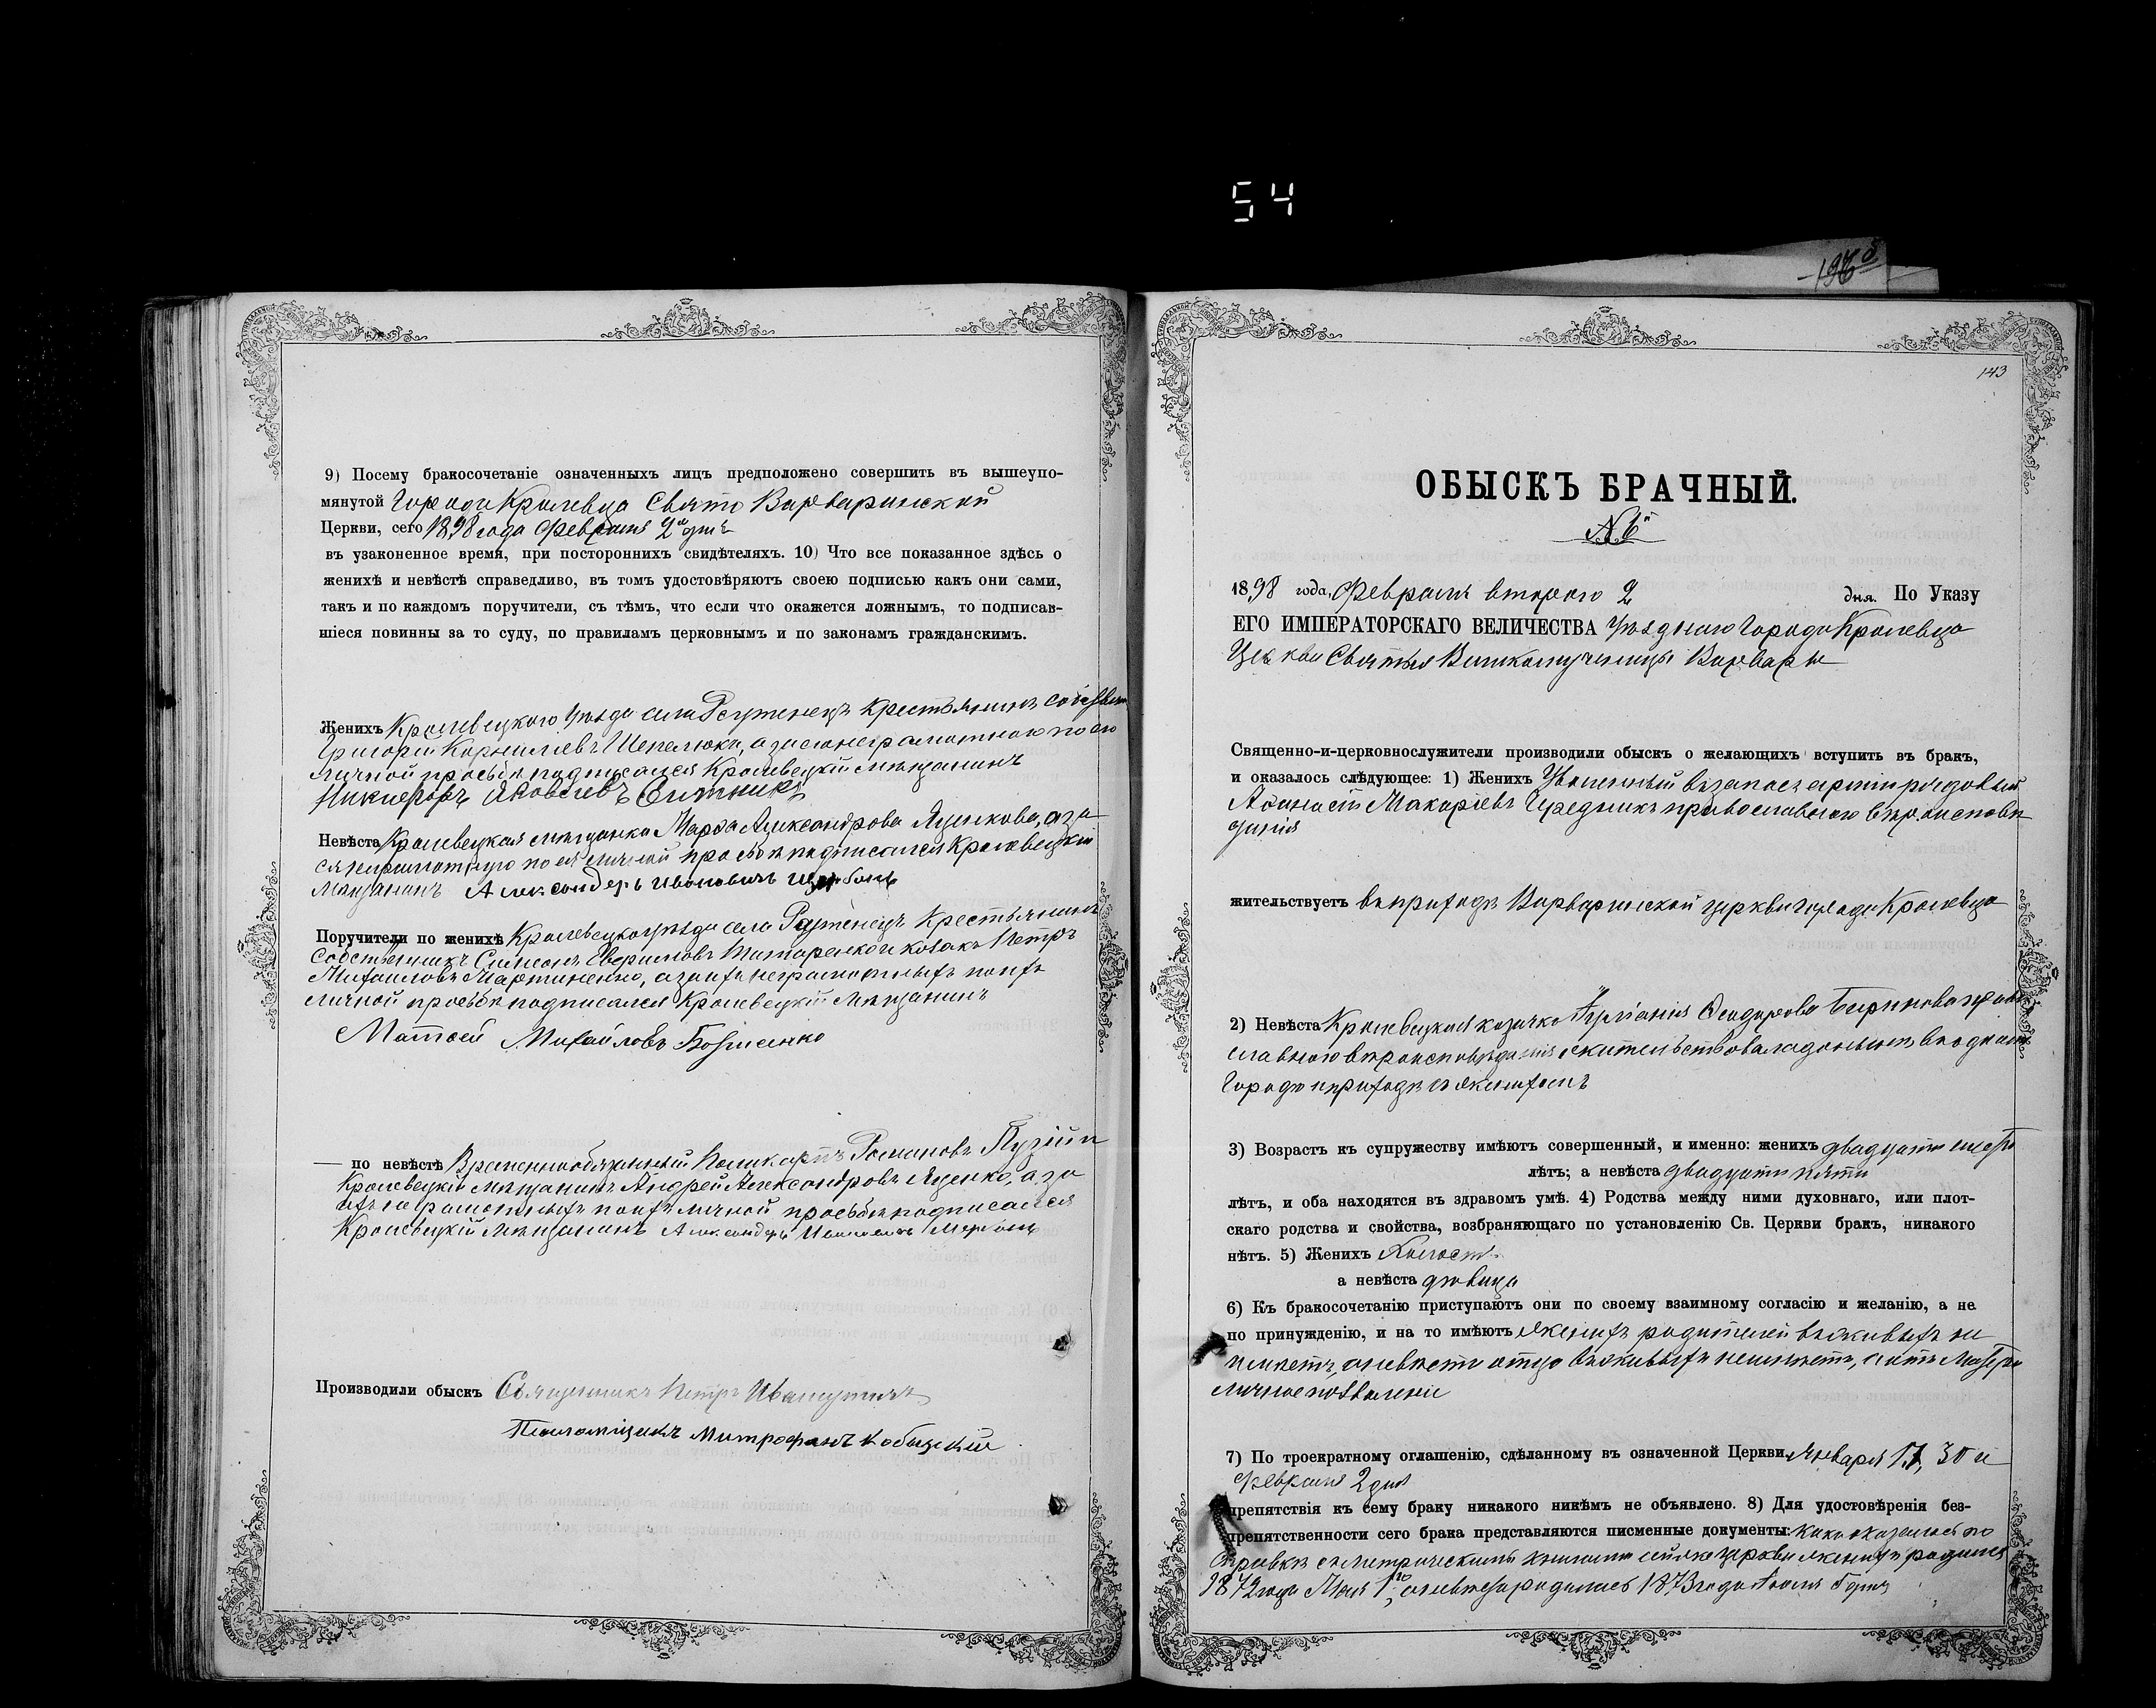 54
196 б
9) Посему бракосочетаніе означенныхъ лицъ предположено совершить въ вышеупо-
мянутой Города Кролевца Свято Варваринской
Церкви, сего 1898 года Февраля 2 дня
въ узаконенное время, при постороннихъ свидѣтеляхъ. 10) Что все показанное здѣсь о
женихѣ и невѣстѣ справедливо, въ томъ удостовѣряютъ своею подписью какъ они сами,
такъ и по каждомъ поручители, съ тѣмъ, что если что окажется ложнымъ, то подписав-
шіеся повинны за то суду, по правиламъ церковнымъ и по законамъ гражданскимъ.
Женихъ Кролевецкого уѣзда села Реутенецъ крестьянинъ собствен
Григорій Корниліевъ Шепелюка, а за его неграмотного по его
личной просьбѣ подписался Кролевецкій мѣщанинъ
Никифоръ Яковлевъ Ситникъ
Невѣста Кролевецкая мѣщанка Марфа Александрова Яценкова, а за
ея неграмотную по ея личной просьбѣ подписался Кролевецкій
Мѣщанинъ Александеръ Ивановичъ
Поручители по женихѣ Кролевецкого уѣзда села Реутенецъ Крестьянинъ
собственникъ Симеонъ Титаренко и козакъ Петръ
Михаиловъ Мартиненко, а за ихъ неграмотныхъ по ихъ
личной просьбѣ подписался Кролевецкій Мѣщанинъ
Матвей Михайловъ Борисенко
— по невѣстѣ Временнообязанный Поликарпъ Романовъ Пузій и
Кролевецкій мѣщанинъ Андрей Александровъ Яценко, а за
ихъ неграмотныхъ по ихъ личной просьбѣ подписался
Кролевецкій Мѣщанинъ Александеръ Ивановичъ
Производили обыскъ Священникъ Петръ
Псаломщикъ Митрофанъ
143
ОБЫСКЪ БРАЧНЫЙ.
№ 6й
1898 года, Февраля второго 2 дня. По Указу
ЕГО ИМПЕРАТОРСКАГО ВЕЛИЧЕСТВА уѣзднаго Города Кролевца
Церкви Святыя Великомученицы Варвары
Священно-и-церковнослужители производили обыскъ о желающихъ вступить въ бракъ,
и оказалось слѣдующее: 1) Женихъ Уволенный въ запасъ арміи рядовый
Афанасій Макаріевъ Чередникъ православного вѣроисповѣ
данія
жительствуетъ въ приходѣ Варваринской церкви города Кролевца
2) Невѣста Кролевецкая козачка Феодорова Биринкова право
славного вѣроисповѣданія жительствовала донынѣ въ одномъ
Городѣ и приходѣ съ женихомъ
3) Возрастъ къ супружеству имѣютъ совершенный, и именно: женихъ двадцати шести
лѣтъ; а невѣста двадцати пяти
лѣтъ, и оба находятся въ здравомъ умѣ. 4) Родства между ними духовнаго, или плот-
скаго родства и свойства, возбраняющаго по установленію Св. Церкви бракъ, никакого
нѣтъ. 5) Женихъ Холостъ
а невѣста дѣвица
6) Къ бракосочетанію приступаютъ они по своему взаимному согласію и желанію, а не
по принужденію, и на то имѣютъ женихъ родителей въ живыхъ не
имѣетъ, а невѣста отца въ живыхъ неимѣетъ, а отъ Матери
личное позволеніе
7) По троекратному оглашенію, сдѣланному въ означенной Церкви Января 17, 30 и
Февраля 2 дня
препятствія къ сему браку никакого никѣмъ не объявлено. 8) Для удостовѣренія без-
препятственности сего брака представляются писменные документы: Какъ оказалось по
справкѣ съ метрическими книгами сей же церкви женихъ родился
1872 года Мая 1го, а невѣста родилась 1873 года дня